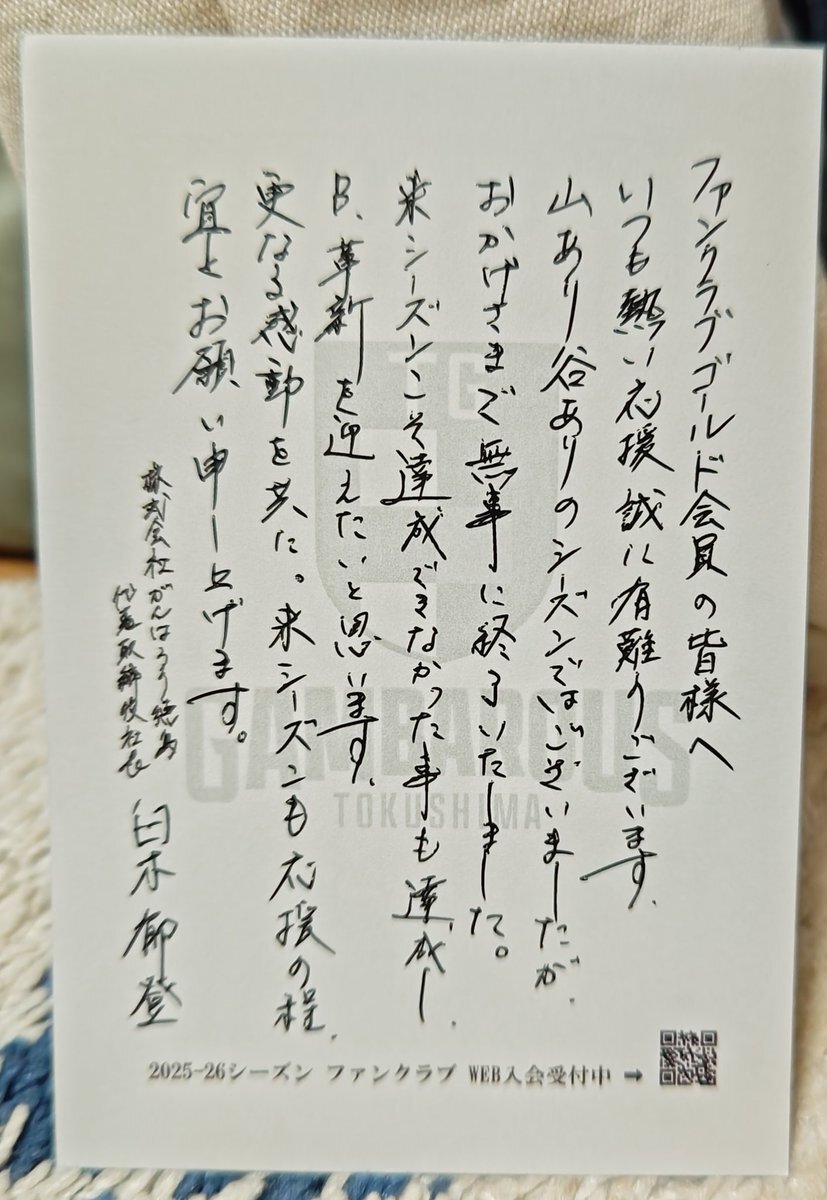 ファンクラブゴールド会員の皆様へ
いつも熱い応援誠に有難うございます。
山あり谷ありのシーズンではございましたが、
おかげさまで無事に終了いたしました。
来シーズンこそ達成できなかった事も達成し、
B.革新を迎えたいと思います。
更なる感動を共に。来シーズンも応援の程、
宜しくお願い申し上げます。
株式会社がんばろう徳島
代表取締役社長 臼木郁登
TG
GAMBAROUS
TOKUSHIMA
2025-26シーズン ファンクラブ WEB入会受付中 →